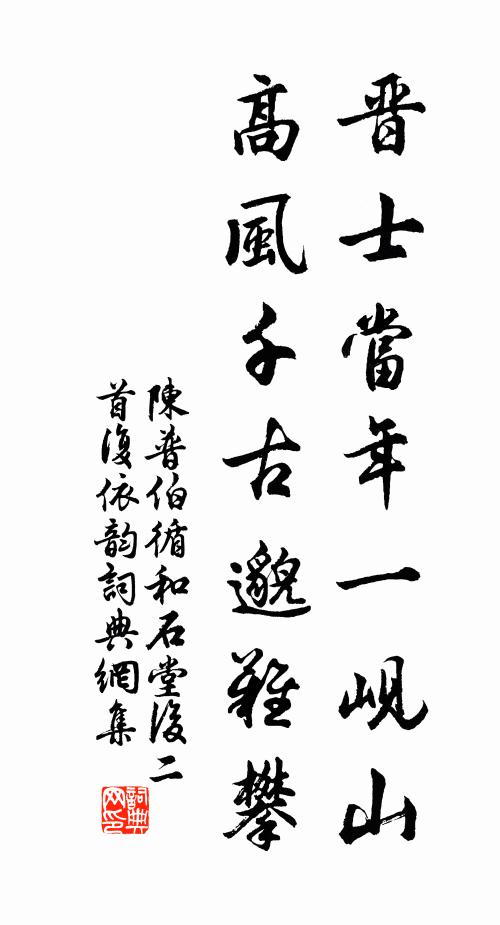 晋士當年一峴山
高風千古邈難攀
陳普伯循和石堂復二
首復依韵詞典網集
詞典网印